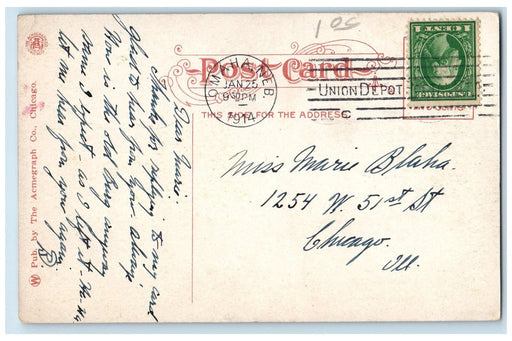 Post Card
THIS SIDE FOR THE ADDRESS.
OMAHA, NEB.
JAN 25
9 30 PM
1914
UNION DEPOT
C
1 05
Miss Marie Blaha
1254 W. 51st St
Chicago.
Ill.
Dear Marie.
Thanks for replying to my card
Glad to hear from you always
How is the old Burg anyway
same I expect as I left it - Ha-Ha
let me hear from you again.
Pub. by The Acmegraph Co., Chicago.